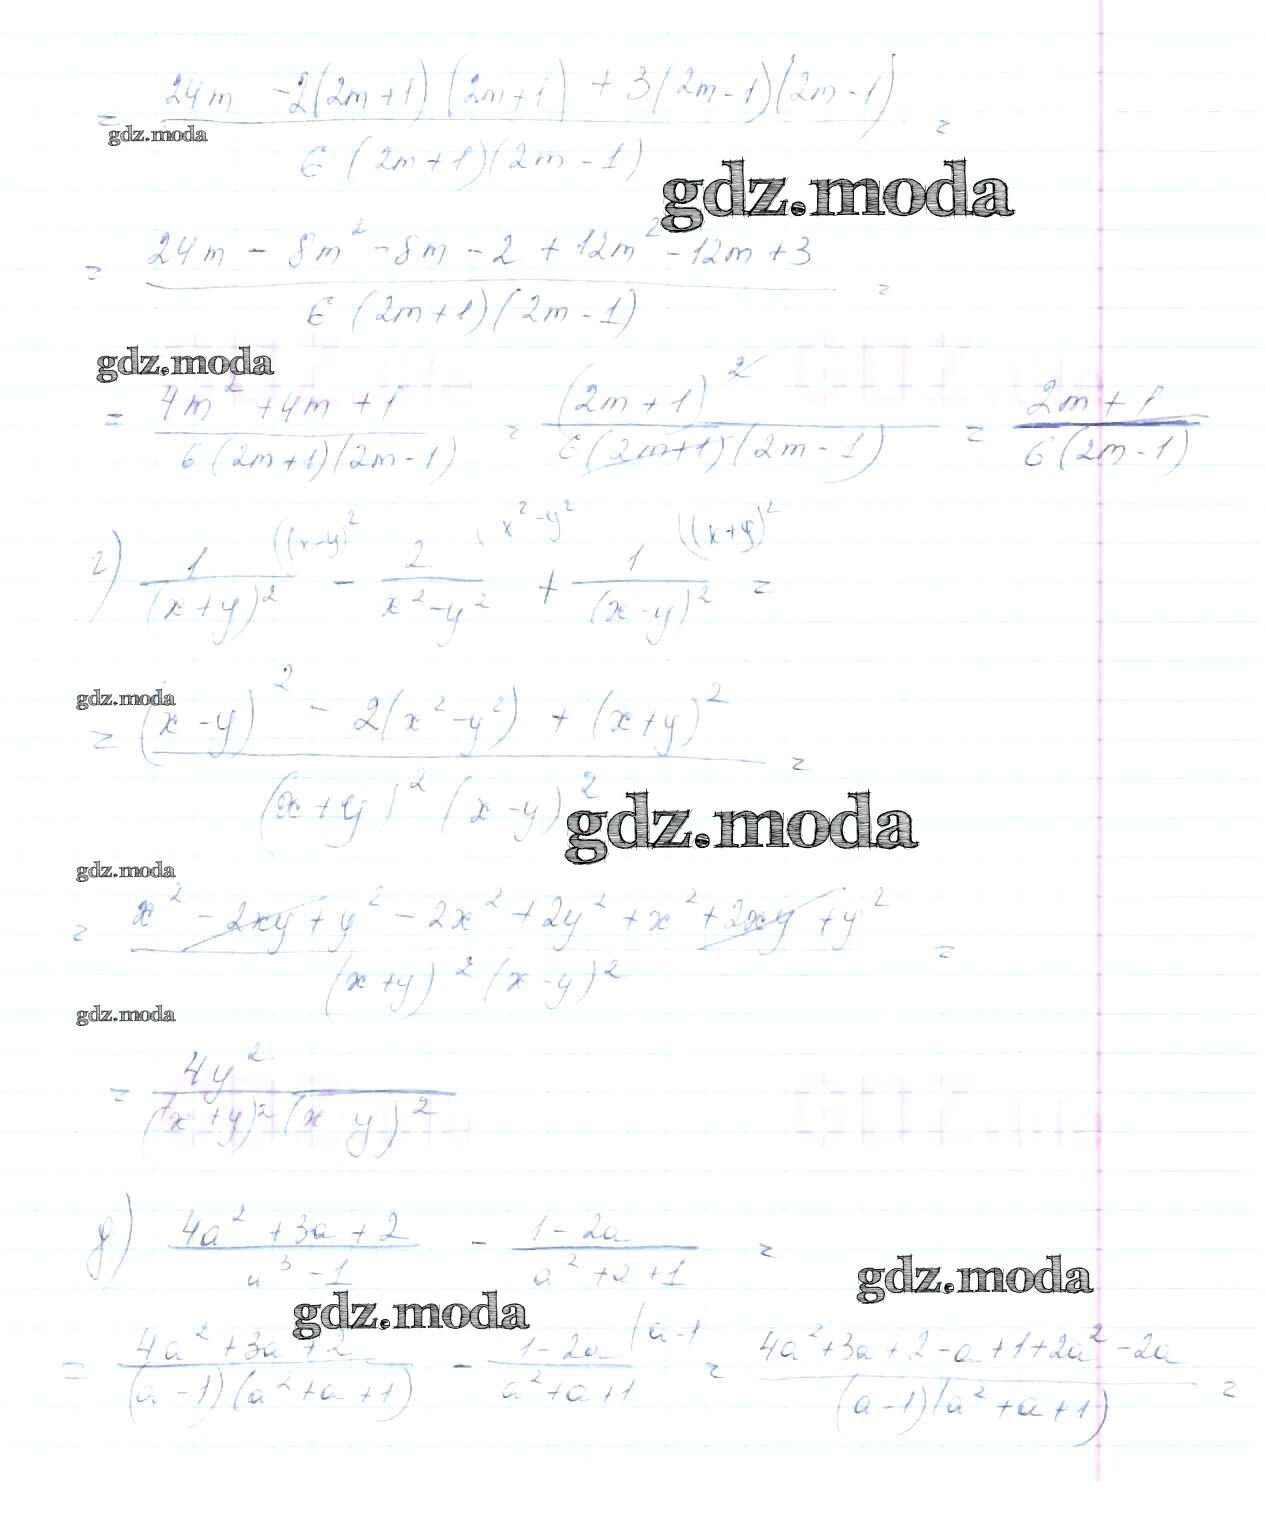 = (24m - 2(2m+1)(2m+1) + 3(2m-1)(2m-1)) / (6(2m+1)(2m-1)) =
gdz.moda
gdz.moda
= (24m - 8m² - 8m - 2 + 12m² - 12m + 3) / (6(2m+1)(2m-1)) =
gdz.moda
= (4m² + 4m + 1) / (6(2m+1)(2m-1)) = (2m+1)² / (6(2m+1)(2m-1)) = (2m+1) / (6(2m-1))
г) 1 / (x+y)² ((x-y)² - 2 / (x²-y²) (x²-y² + 1 / (x-y)² ((x+y)² =
gdz.moda
= ((x-y)² - 2(x²-y²) + (x+y)²) / ((x+y)² (x-y)²) =
gdz.moda
gdz.moda
= (x² - 2xy + y² - 2x² + 2y² + x² + 2xy + y²) / ((x+y)² (x-y)²) =
gdz.moda
= 4y² / ((x+y)² (x y)²)
д) (4a² + 3a + 2) / (a³ - 1) - (1-2a) / (a² + a + 1) =
gdz.moda
gdz.moda
= (4a² + 3a + 2) / ((a-1)(a² + a + 1)) - (1-2a) / (a² + a + 1) (a-1 = (4a² + 3a + 2 - a + 1 + 2a² - 2a) / ((a-1)(a² + a + 1)) =